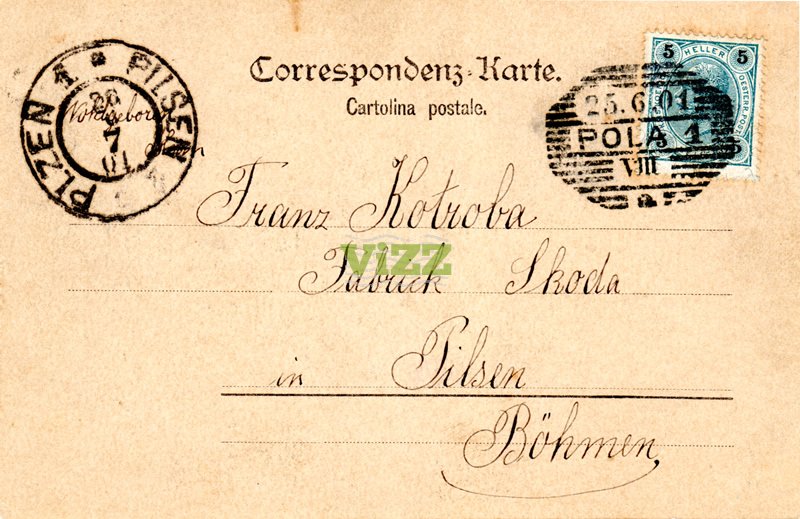 Correspondenz-Karte.
Cartolina postale.
PLZEN 1 * PILSEN 1
26
7
01
25.6.01
POLA 1
VIII
a
5 HELLER 5
OESTERR. POST
Franz Kotroba
Fabrick Skoda
in Pilsen
Böhmen,
VIZZ